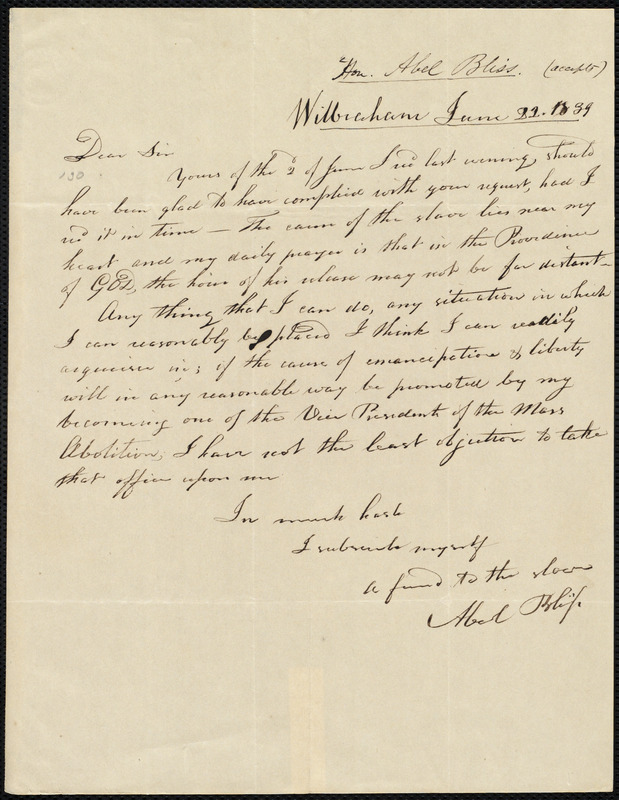 Hon. Abel Bliss. (accepts)
Wilbraham June 22. 1839
Dear Sir
130
Yours of the 2d of June I recd last evening, should
have been glad to have complied with your request, had I
recd it in time — The cause of the slave lies near my
heart and my daily prayer is that in the Providence
of GOD, the hour of his release may not be far distant—
Any thing that I can do, any situation in which
I can reasonably be placed I think I can readily
acquiesce in; if the cause of emancipation & liberty
will in any reasonable way be promoted by my
becoming one of the Vice Presidents of the Mass
Abolition, I have not the least objection to take
that office upon me
In much haste
I subscribe myself
a friend to the slave
Abel Bliss